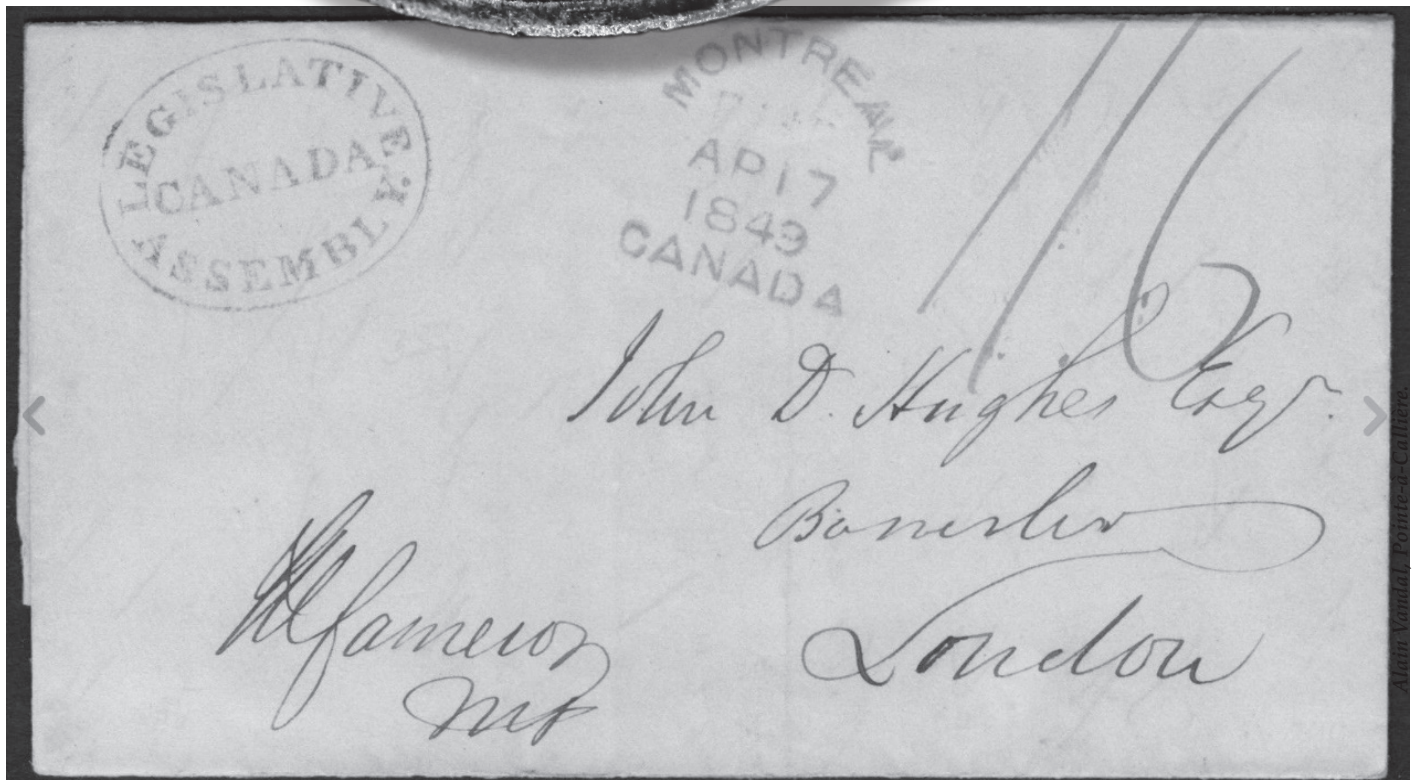 LEGISLATIVE
CANADA
ASSEMBLY.
MONTREAL
AP 17
1849
CANADA
1/6
John D. Hughes Esqr.
Barrister
London
Cameron
MP
Alain Vandal, Pointe-à-Callière.